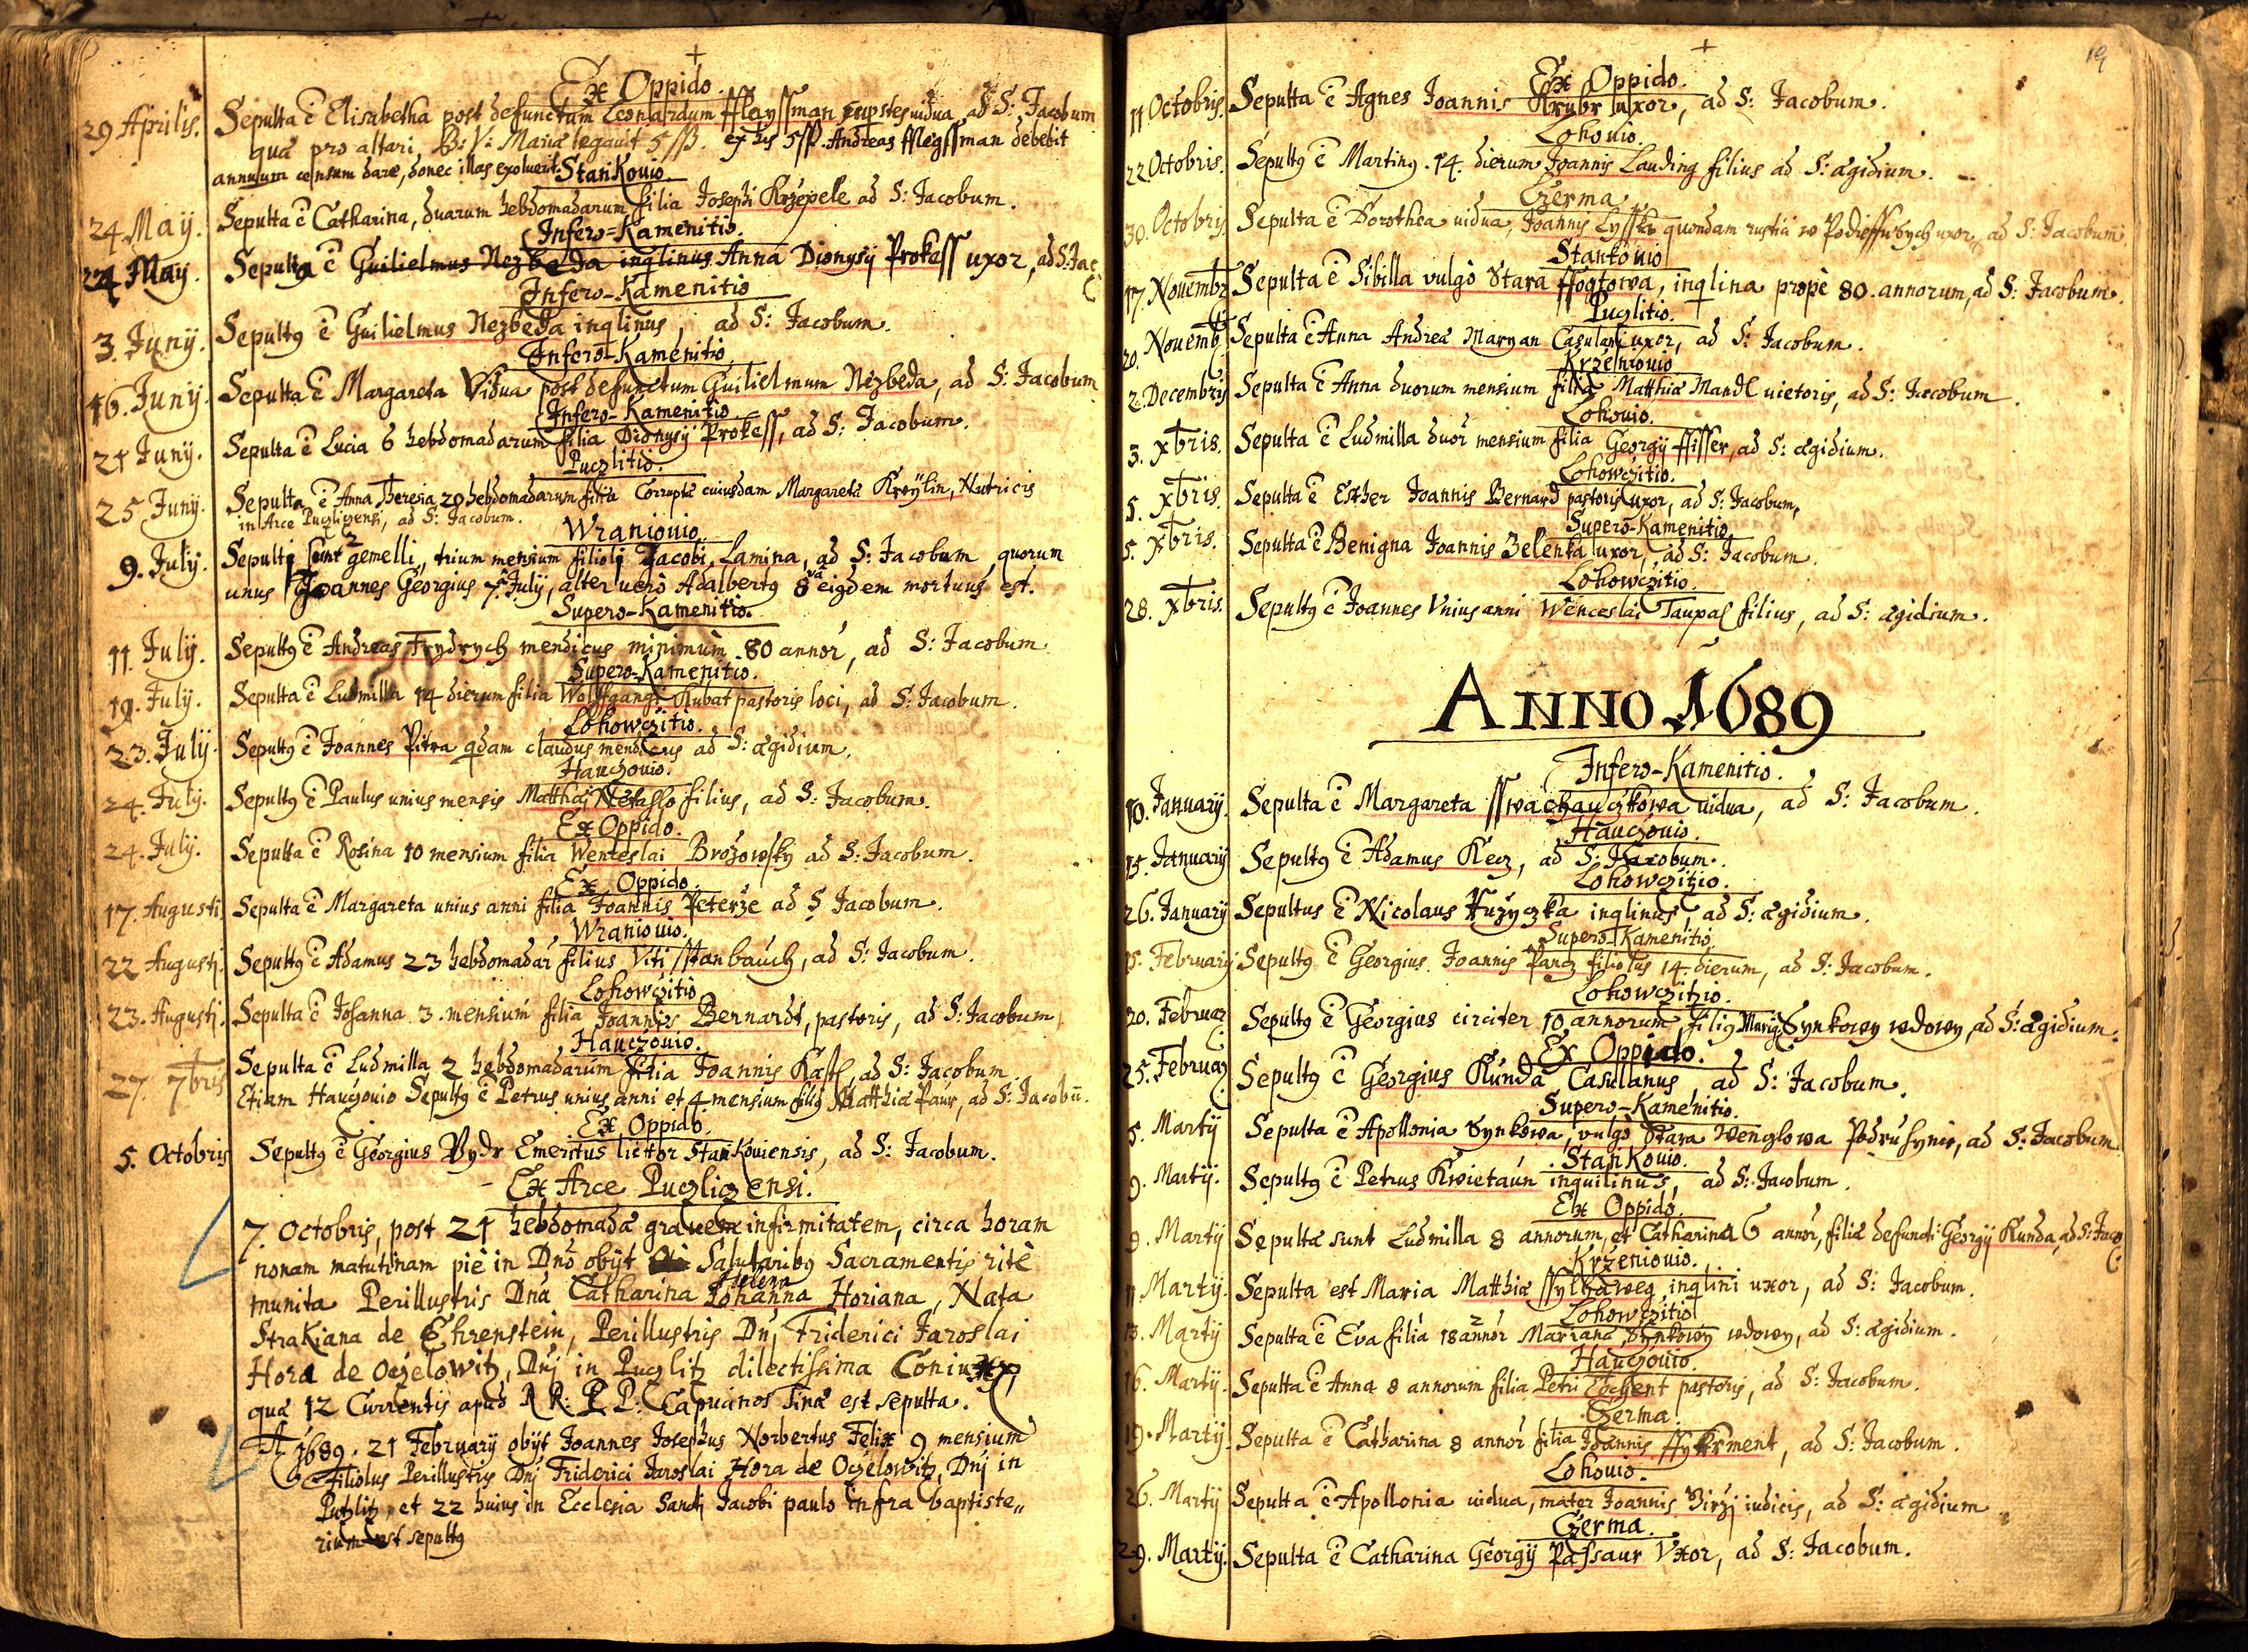 +
Ex Oppido.
29 Aprilis. Sepulta ẽ Elisabetha post defunctum Leonardum ffleyssman vidua, ad S: Jacobum
quæ pro altari B: V: Mariæ legavit 5 ß. ex his 5 ß. Andreas fflegssman debebit
annuum censum dare, donec illas exoluerit. Stankouio
24 May. Sepulta ẽ Catharina, duarum hebdomadarum filia Josephi Krzepele ad S: Jacobum.
Infero=Kamenitio.
24 May. Sepulta ẽ Guilielmus Nezbeda inqlinus. Anna Dionysij Prokess uxor, ad S: Jac
Infero-Kamenitio
3. Junij. Sepultq ẽ Guilielmus Nezbeda inqlinus, ad S: Jacobum.
Infero-Kamenitio
16. Junij. Sepulta ẽ Margareta Vidua post defunctum Guilielmum Nezbeda, ad S: Jacobum
Infero-Kamenitio.
21 Junij. Sepulta ẽ Lucia 6 hebdomadarum filia Dionysij Prokess, ad S: Jacobum.
Puczlitio.
25 Junij. Sepulta ẽ Anna Theresia 29 hebdomadarum filia Corruptæ cuiusdam Margaretæ Kreylin, Nutricis
in Arce Puczlicensi, ad S: Jacobum.
Wraniouio.
9. July. Sepulti sunt 2 gemelli, trium mensium filioli Jacobi Lamina, ad S: Jacobum, quorum
unus Joannes Georgius 7. July, alter uerò Adalbertq 8va eiqdem mortuus est.
Supero-Kamenitio.
11. July. Sepultq ẽ Andreas Frydrych mendicus minimùm 80 annor, ad S: Jacobum
Supero-Kamenitio.
19. July. Sepulta ẽ Ludmilla 14 dierum filia Wolffgangi Kubat pastoris loci, ad S: Jacobum.
Lohowczitio.
23. July. Sepultq ẽ Joannes Pitra qdam claudus mendicus ad S: ægidium.
Hauczouio.
24. July. Sepultq ẽ Paulus unius mensis Matthæj Netahlo filius, ad S: Jacobum.
Ex Oppido.
24. July. Sepulta ẽ Rosina 10 mensium filia Wenceslai Brożowsky ad S: Jacobum.
Ex Oppido
17. Augusti Sepulta ẽ Margareta unius anni filia Joannis Peterże ad S Jacobum.
Wraniouio.
22 Augusti. Sepultq ẽ Adamus 23 hebdomadar filius Viti sstanbauch, ad S: Jacobum.
Lohowczitio
23. Augusti. Sepulta ẽ Johanna 3. mensium filia Joannis Bernardt, pastoris, ad S: Jacobum
Hauczouio.
27. 7bris Sepulta ẽ Ludmilla 2 hebdomadarum filia Joannis Kastl, ad S: Jacobum
Etiam Hauczouio Sepultq ẽ Petrus unius anni et 4 mensium filiq Matthiæ Paur, ad S: Jacobū.
Ex Oppido.
5. Octobris Sepultq ẽ Georgius Vydr Emeritus lictor Stankouiensis, ad S: Jacobum.
Ex Arce Puczliczensi.
7. Octobris, post 21 hebdomadæ gravem infirmitatem, circa horam
nonam matutinam piè in Dno obijt Salutaribq Sacramentis ritè
Helena
munita Perillustris Dna Catharina Johanna Horiana, Nata
Strakiana de Ehrenstein, Perillustris Dnj Friderici Jaroslai
Hora de Oczelowitz, Dnj in Puczlitz dilectissima Coniunx
quæ 12 Currentis apud R R: P P: Capucinos Tinæ est sepulta.
A 1689. 21 February obijt Joannes Josephus Norbertus Felix 9 mensium
Filiolus Perillustris Dnj Friderici Jaroslai Hora de Oczelowitz, Dnj in
Putzlitz, et 22 huius in Ecclesia Sancti Jacobi paulo infra baptiste„
rium est sepultq
19
+
Ex Oppido.
11 Octobris. Sepulta ẽ Agnes Joannis Krubr uxor, ad S: Jacobum.
Lohouio.
22 Octobris. Sepultq ẽ Martinq 14. dierum Joannis Lauding filius ad S: ægidium.
Czerma
30. Octobris Sepulta ẽ Dorothea uidua, Joannis Lyssko quondam rustici w Podiessusych uxor, ad S: Jacobum
Stankouio
17. Novembr Sepulta ẽ Sibilla vulgò Stara ffogtowa, inqlina propè 80. annorum, ad S: Jacobum.
Puczlitio.
20. Novemb Sepulta ẽ Anna Andreæ Maryan Casulani uxor, ad S: Jacobum.
Krzeniouio
2. Decembris Sepulta ẽ Anna duorum mensium filia Matthiæ Mandl uietoris, ad S: Jacobum
Lohouio.
3. xbris. Sepulta ẽ Ludmilla duor mensium filia Georgij ffisser, ad S: ægidium.
Lohowczitio.
5. xbris. Sepulta ẽ Esther Joannis Bernard pastoris uxor, ad S: Jacobum,
Supero-Kamenitio
5. xbris. Sepulta ẽ Benigna Joannis Zelenka uxor, ad S: Jacobum.
Lohowczitio.
28. xbris. Sepultq ẽ Joannes Vnius anni Wenceslai Taupal filius, ad S: ægidium.
ANNO 1689
Infero-Kamenitio.
10. January. Sepulta ẽ Margareta sswachauczkowa uidua, ad S: Jacobum.
Hauczouio.
15. January Sepultq ẽ Adamus Kecz, ad S: Jacobum.
Lohowczitio.
26. January Sepultus ẽ Nicolaus Hużyczka inqlinus, ad S: ægidium.
Supero-Kamenitio
15. February Sepultq ẽ Georgius Joannis Pancz filiolus 14. dierum, ad S: Jacobum.
Lohowczitzio.
20. Februar Sepultq ẽ Georgius circiter 10 annorum, filiq Mariæ Synkowy wdowy, ad S: ægidium.
Ex Oppido.
25. Februar Sepultq ẽ Georgius Kunda Casulanus, ad S: Jacobum.
Supero-Kamenitio.
5. Martij Sepulta ẽ Apollonia Synkowa, vulgò Stara Wenglowa Podruhynie, ad S: Jacobum
Stankouio.
9. Martij. Sepultq ẽ Petrus Kwietaun inquilinus, ad S: Jacobum.
Ex Oppido.
9. Martij Sepultæ sunt Ludmilla 8 annorum, et Catharina 6 annor, filiæ defuncti Georgij Kunda, ad S: Jaco
Krzeniouio.
11. Martij. Sepulta est Maria Matthiæ ssylhaweg inqlini uxor, ad S: Jacobum.
Lohowczitio
13. Martij Sepulta ẽ Eva filia 18 annor Mariana Synkowy wdowy, ad S: ægidium.
Hauczouio.
16. Martij. Sepulta ẽ Anna 8 annorum filia Petri pastoris, ad S: Jacobum.
Czerma.
19. Martij. Sepulta ẽ Catharina 8 annor filia Joannis ssykrment, ad S: Jacobum.
Lohouio.
26. Martij Sepulta ẽ Apollonia uidua, mater Joannis Birżj iudicis, ad S: ægidium
Czerma.
29. Martij. Sepulta ẽ Catharina Georgij Passaur Vxor, ad S: Jacobum.